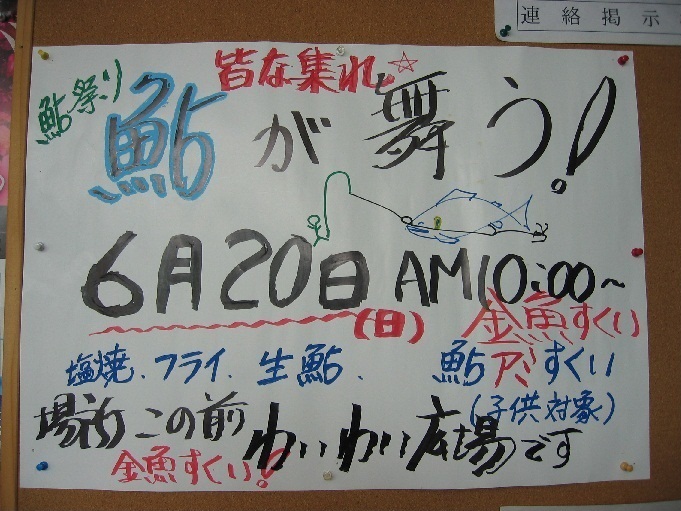 連絡掲示
皆な集れ☆
鮎祭り
鮎が舞う!
6月20日 AM10:00~
(日)
金魚すくい
塩焼、フライ、生鮎、
鮎アミすくい
(子供対象)
場所 この前 わいわい広場です
金魚すくい!